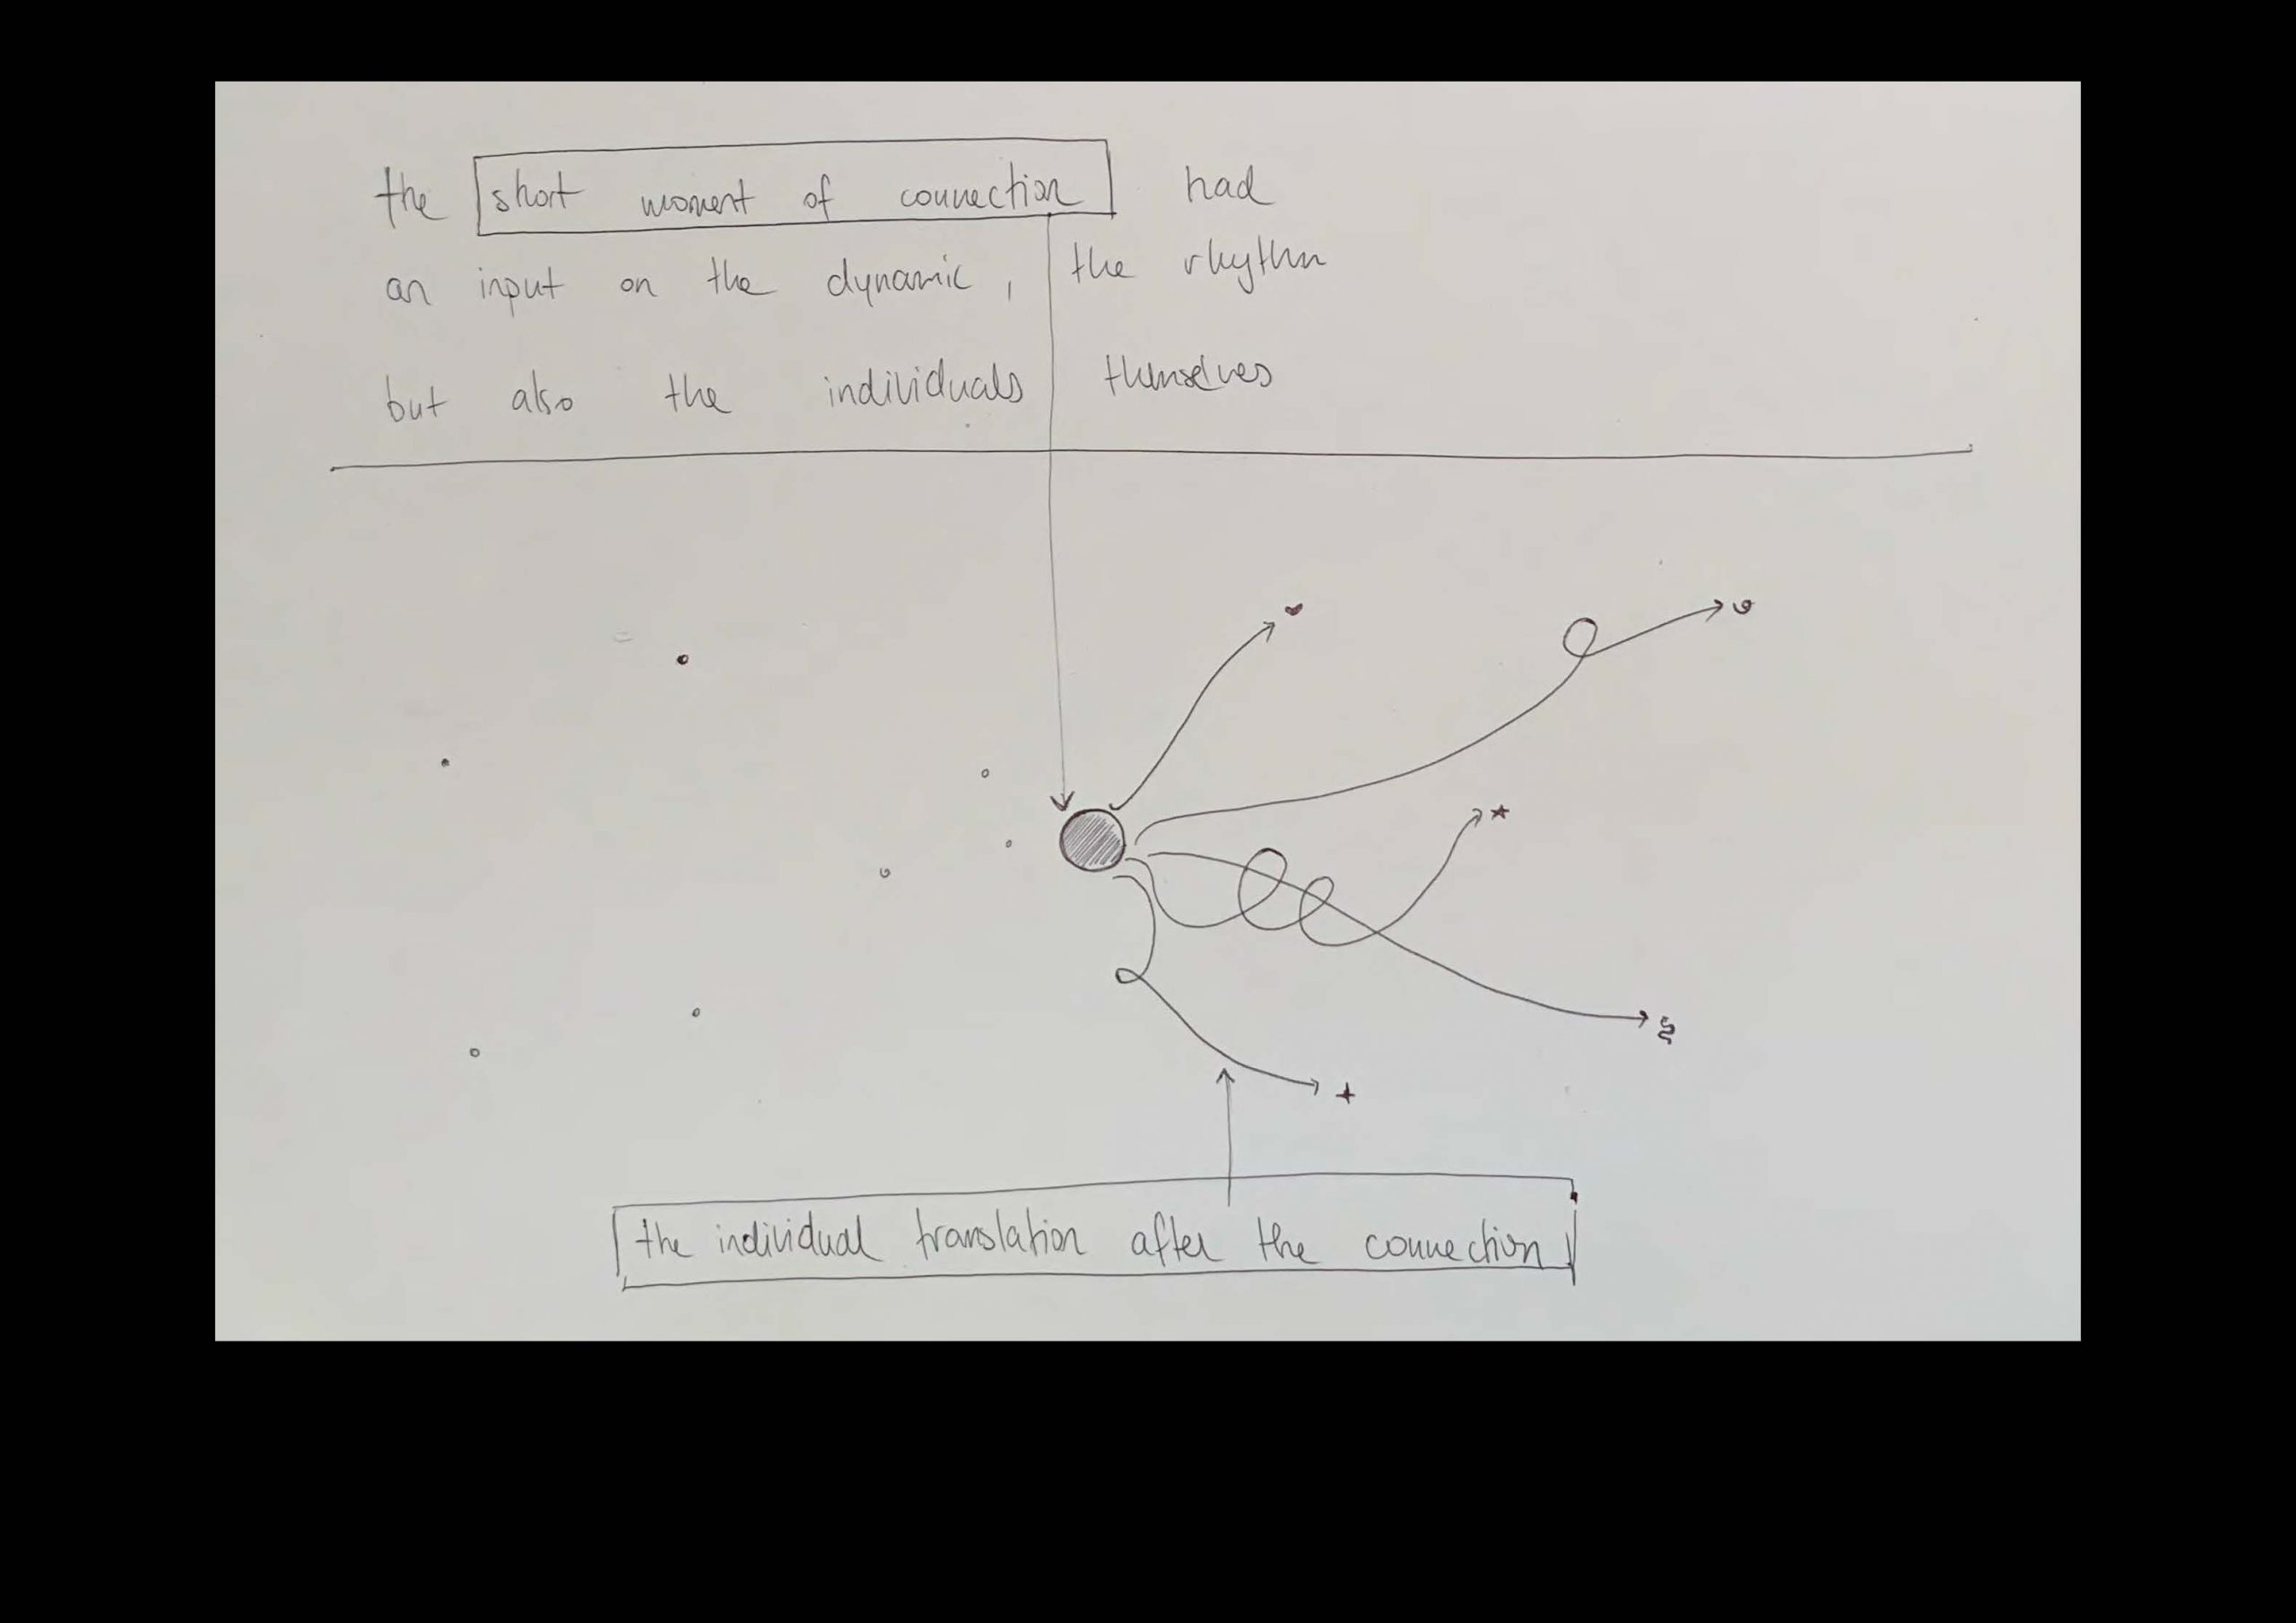 the short moment of connection had
an input on the dynamic, the rhythm
but also the individuals themselves
the individual translation after the connection